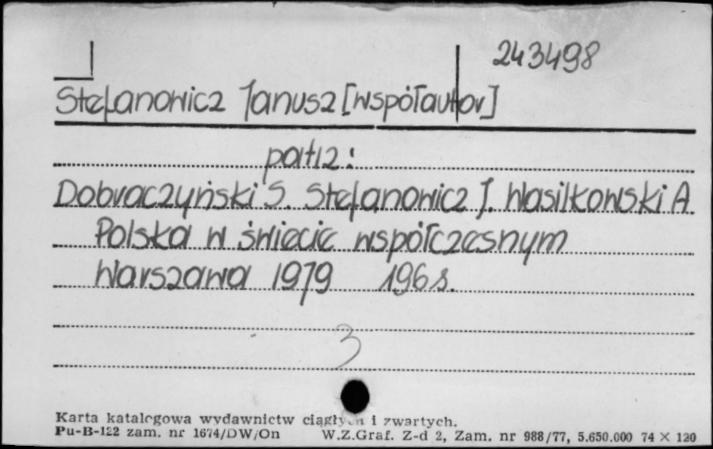 243498
Stefanowicz Janusz [współautor]
patrz:
Dobraczyński S. Stefanowicz J. Wasilkowski A
Polska w świecie współczesnym
Warszawa 1979 196 s.
3
Karta katalogowa wydawnictw ciągłych i zwartych.
Pu-B-122 zam. nr 1674/DW/On W.Z.Graf. Z-d 2, Zam. nr 988/77, 5.650.000 74 × 120